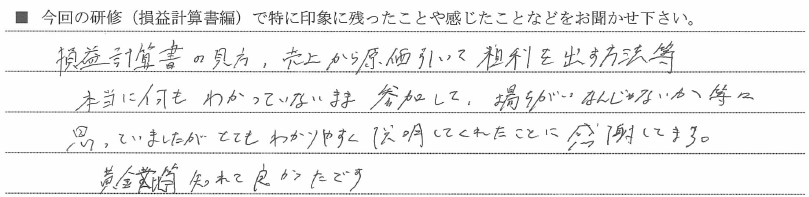 ■ 今回の研修（損益計算書編）で特に印象に残ったことや感じたことなどをお聞かせ下さい。
損益計算書の見方、売上から原価引いて粗利を出す方法等
本当に何もわかっていないまま参加して、場ちがいなんじゃないか等に
思っていましたがとてもわかりやすく説明してくれたことに感謝してます。
黄金 等知れて良かったです